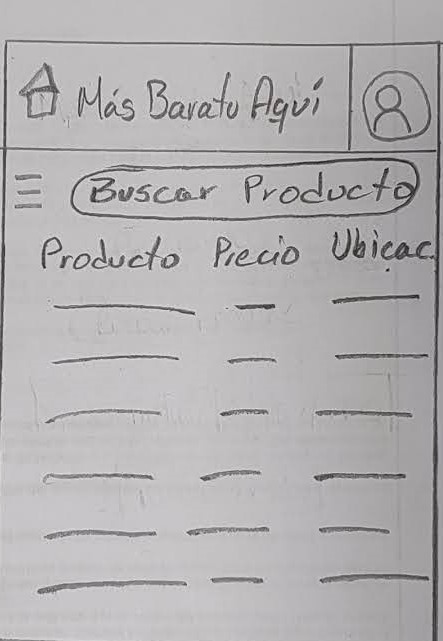 Más Barato Aquí
Buscar Producto
Producto Precio Ubicac.